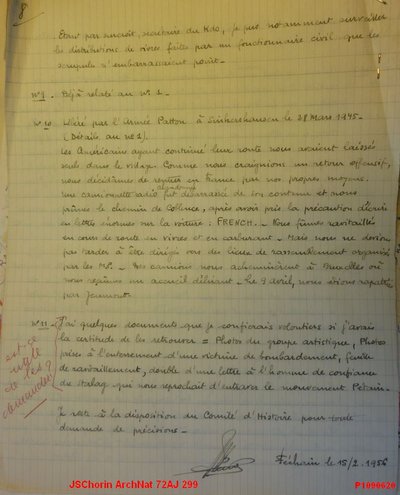 8
Etant par surcroît, secrétaire du Kdo, je pus notamment surveiller
les distributions de vivres faites par un fonctionnaire civil que les
scrupules n'embarrassaient point.-
N° 9 - Déjà relaté au N° 1.-
N° 10 - Libéré par l'Armée Patton à le 28 Mars 1945-
(Détails au N° 1).
Les Américains ayant continué leur route nous avaient laissés
seuls dans le village. Comme nous craignions un retour offensif,
nous décidâmes de rentrer en France par nos propres moyens.
une camionnette radio abandonnée fut débarrassée de son contenu et nous
prîmes le chemin de Coblence, après avoir pris la précaution d'écrire
en lettres énormes sur la voiture : FRENCH.- Nous fûmes ravitaillés
en cours de route en vivres et en carburant.- Mais nous ne devions
pas tarder à être dirigés vers des lieux de rassemblement organisés
par les MP.- Des camions nous acheminèrent à Bruxelles où
nous reçûmes un accueil délirant.- Le 9 avril, nous étions rapatriés
par Jeumont.
N° 11 - J'ai quelques documents que je confierais volontiers si j'avais
la certitude de les retrouver = Photos du groupe artistique, Photos
prises à l'enterrement d'une victime de bombardement, feuille
de ravitaillement, double d'une lettre à l'homme de confiance
du stalag qui nous reprochait d'entraver le mouvement Pétain.-
est-ce
utile
de les
demander ?
Je reste à la disposition du Comité d'Histoire pour toute
demande de précisions.-
Féchain le 15/2.1956
JSChorin ArchNat 72AJ 299
P1090620